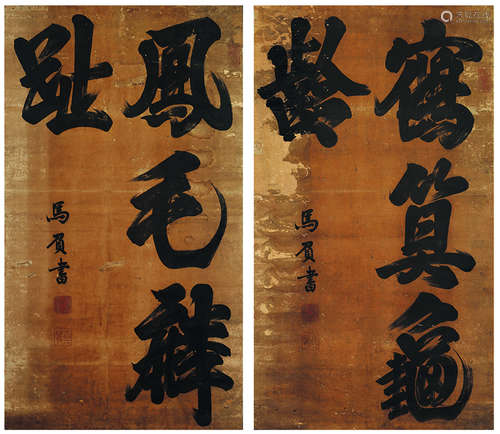 鶴算龜
齡
馬負書
鳳毛麟
趾
馬負書